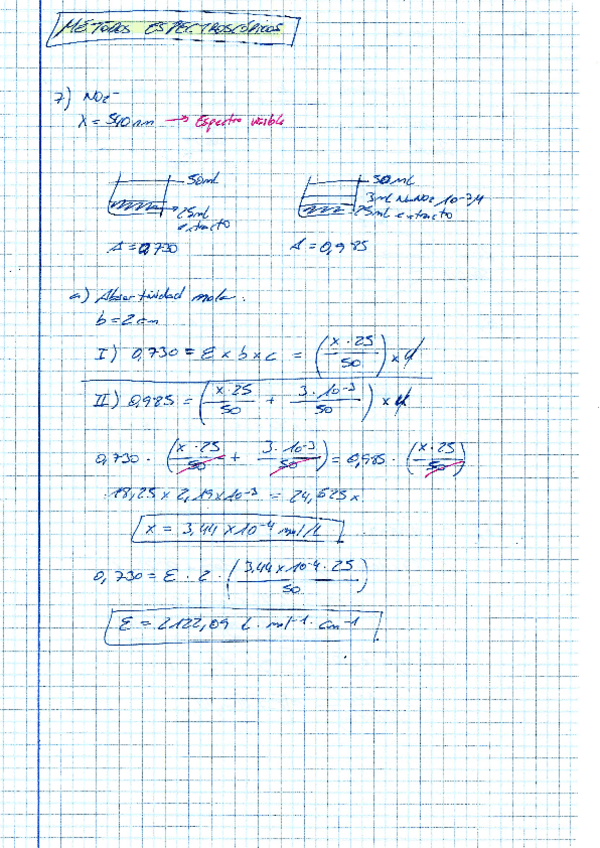 MÉTODOS ESPECTROSCÓPICOS
7) NO2-
λ = 540nm → Espectro visible
50ml
25ml
extracto
A = 0,730
50ml
3ml NaNO2 10-3M
25ml extracto
A = 0,985
a) Absortividad molar.
b = 2 cm
I) 0,730 = ε x b x c = (x · 25 / 50) x
II) 0,985 = (x · 25 / 50 + 3 · 10-3 / 50) x
0,730 · (x · 25 / 50 + 3 · 10-3 / 50) = 0,985 · (x · 25 / 50)
18,25 x 2,19x10-3 = 24,625x
x = 3,44 x10-4 mol/L
0,730 = ε · 2 · (3,44x10-4 · 25 / 50)
ε = 2122,09 L · mol-1 · cm-1